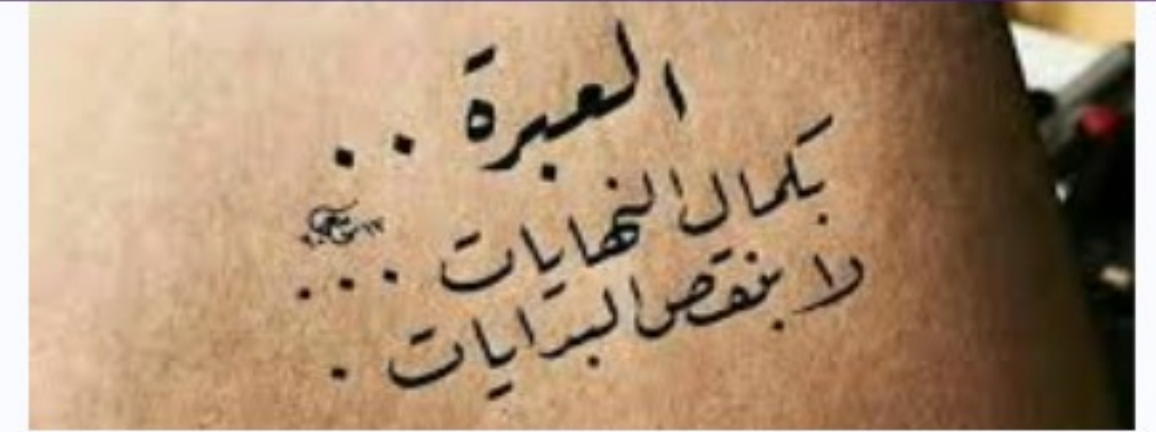 العبرة ..
بكمال النهايات ...
لا بنقص البدايات .